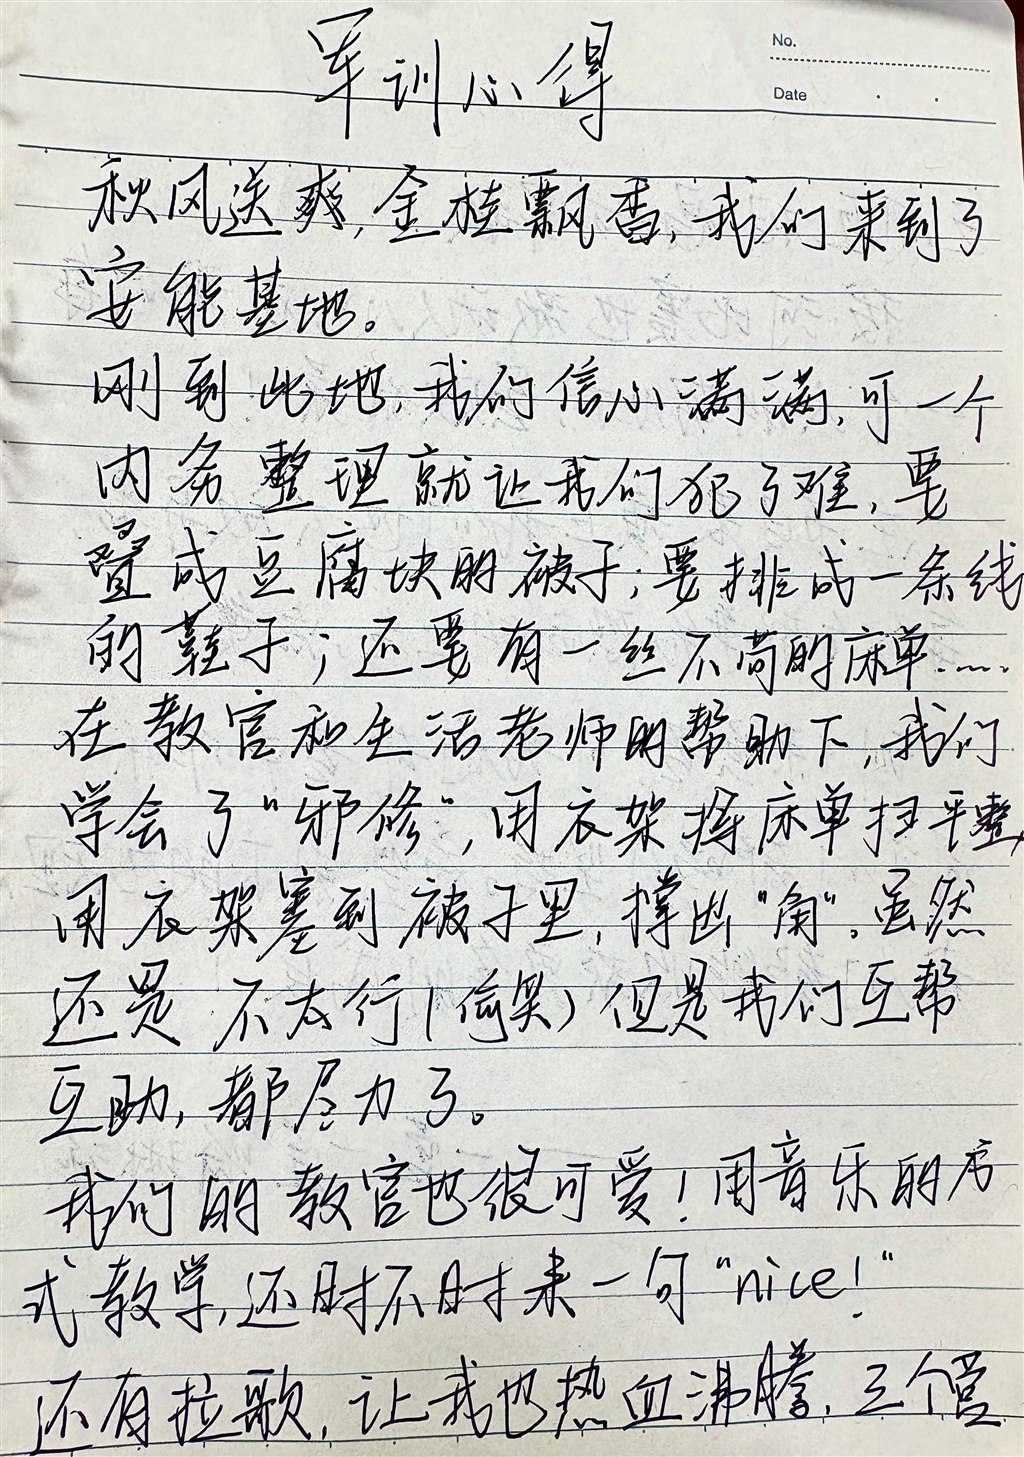 No.
Date
军训心得
秋风送爽,金桂飘香,我们来到了
安能基地。
刚到此地,我们信心满满,可一个
内务整理就让我们犯了难,要
叠成豆腐块的被子;要排成一条线
的鞋子;还要有一丝不苟的床单……
在教官和生活老师的帮助下,我们
学会了“邪修”,用衣架将床单扫平整,
用衣架塞到被子里,撑出“角”。虽然
还是不太行(偷笑)但是我们互帮
互助,都尽力了。
我们的教官也很可爱!用音乐的方
式教学,还时不时来一句“nice!”
还有拉歌,让我也热血沸腾,三个营